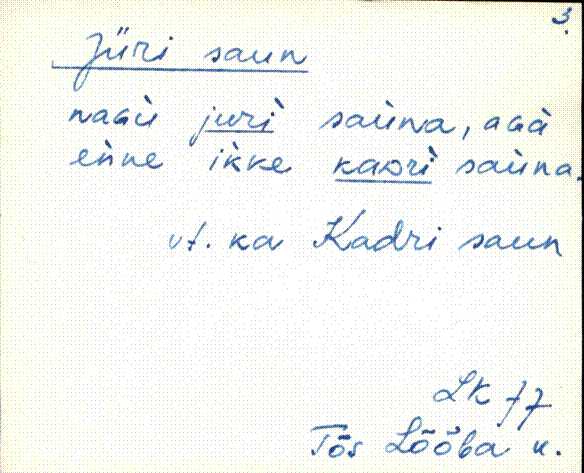 3.
Jüri saun
naaù juri̇̀ saùna, aaà
eǹne ìkke kaori̇̀ saùna.
vt. ka Kadri saun
LK 77
Tõs Lõõba k.